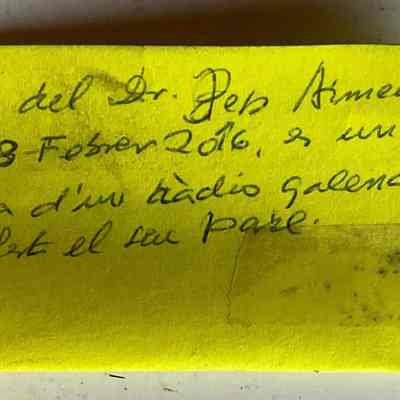 del Dr. Pep Aime
3 Febrer 2016, es un
d'un ràdio galena
el seu pare.